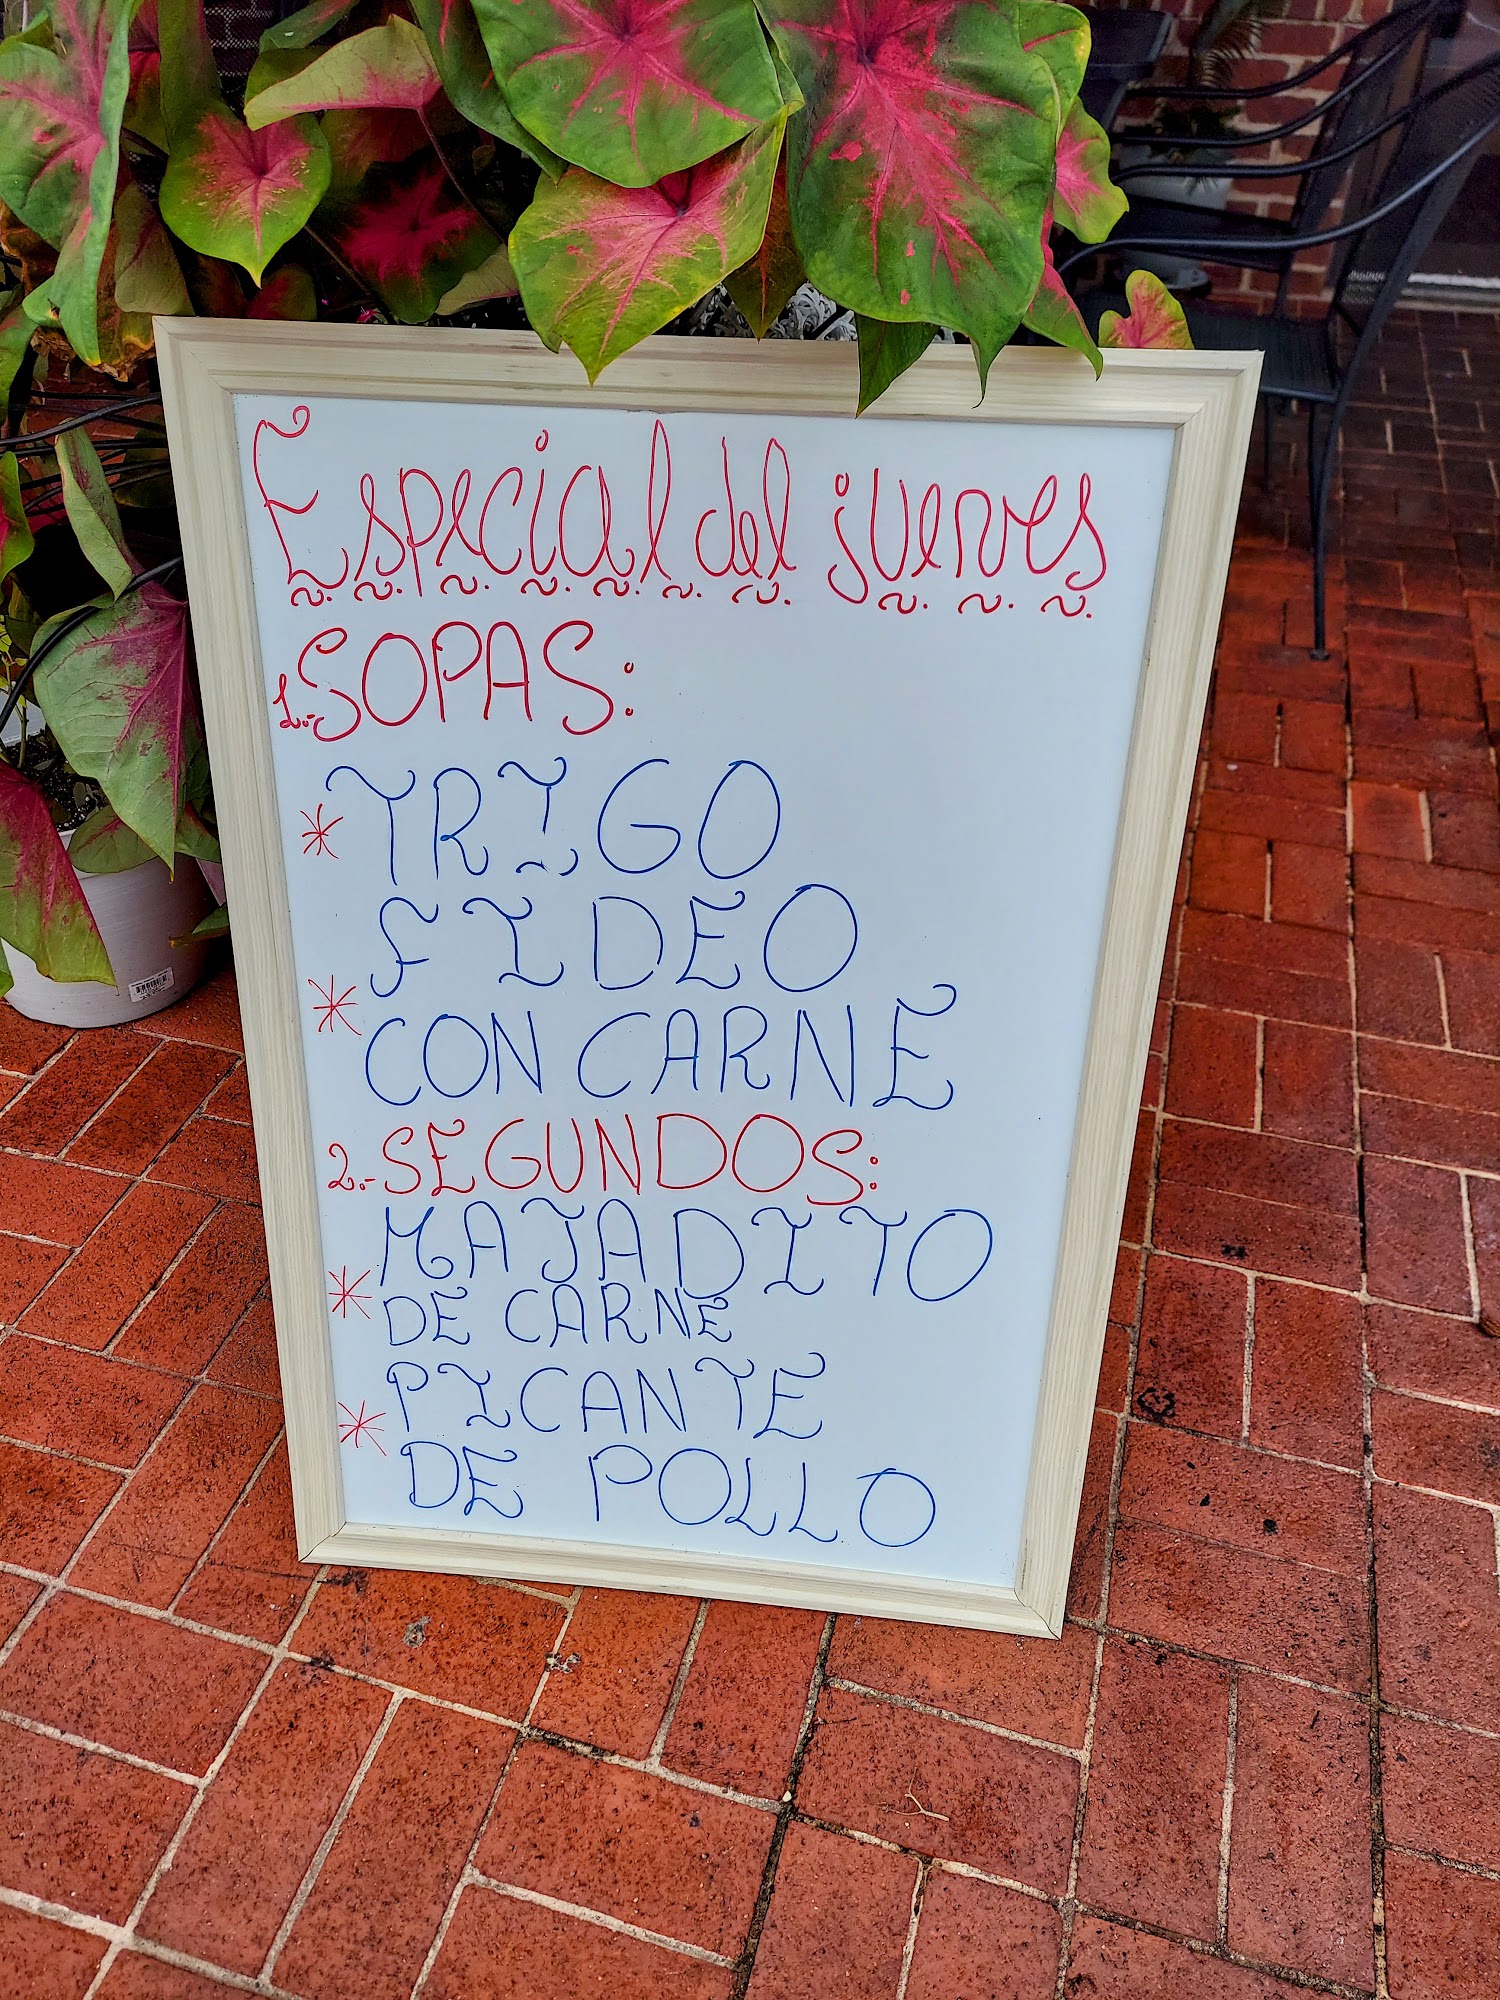 Especial del jueves
1.- SOPAS:
* TRIGO
* FIDEO
CON CARNE
2.- SEGUNDOS:
* MAJADITO
DE CARNE
* PICANTE
DE POLLO